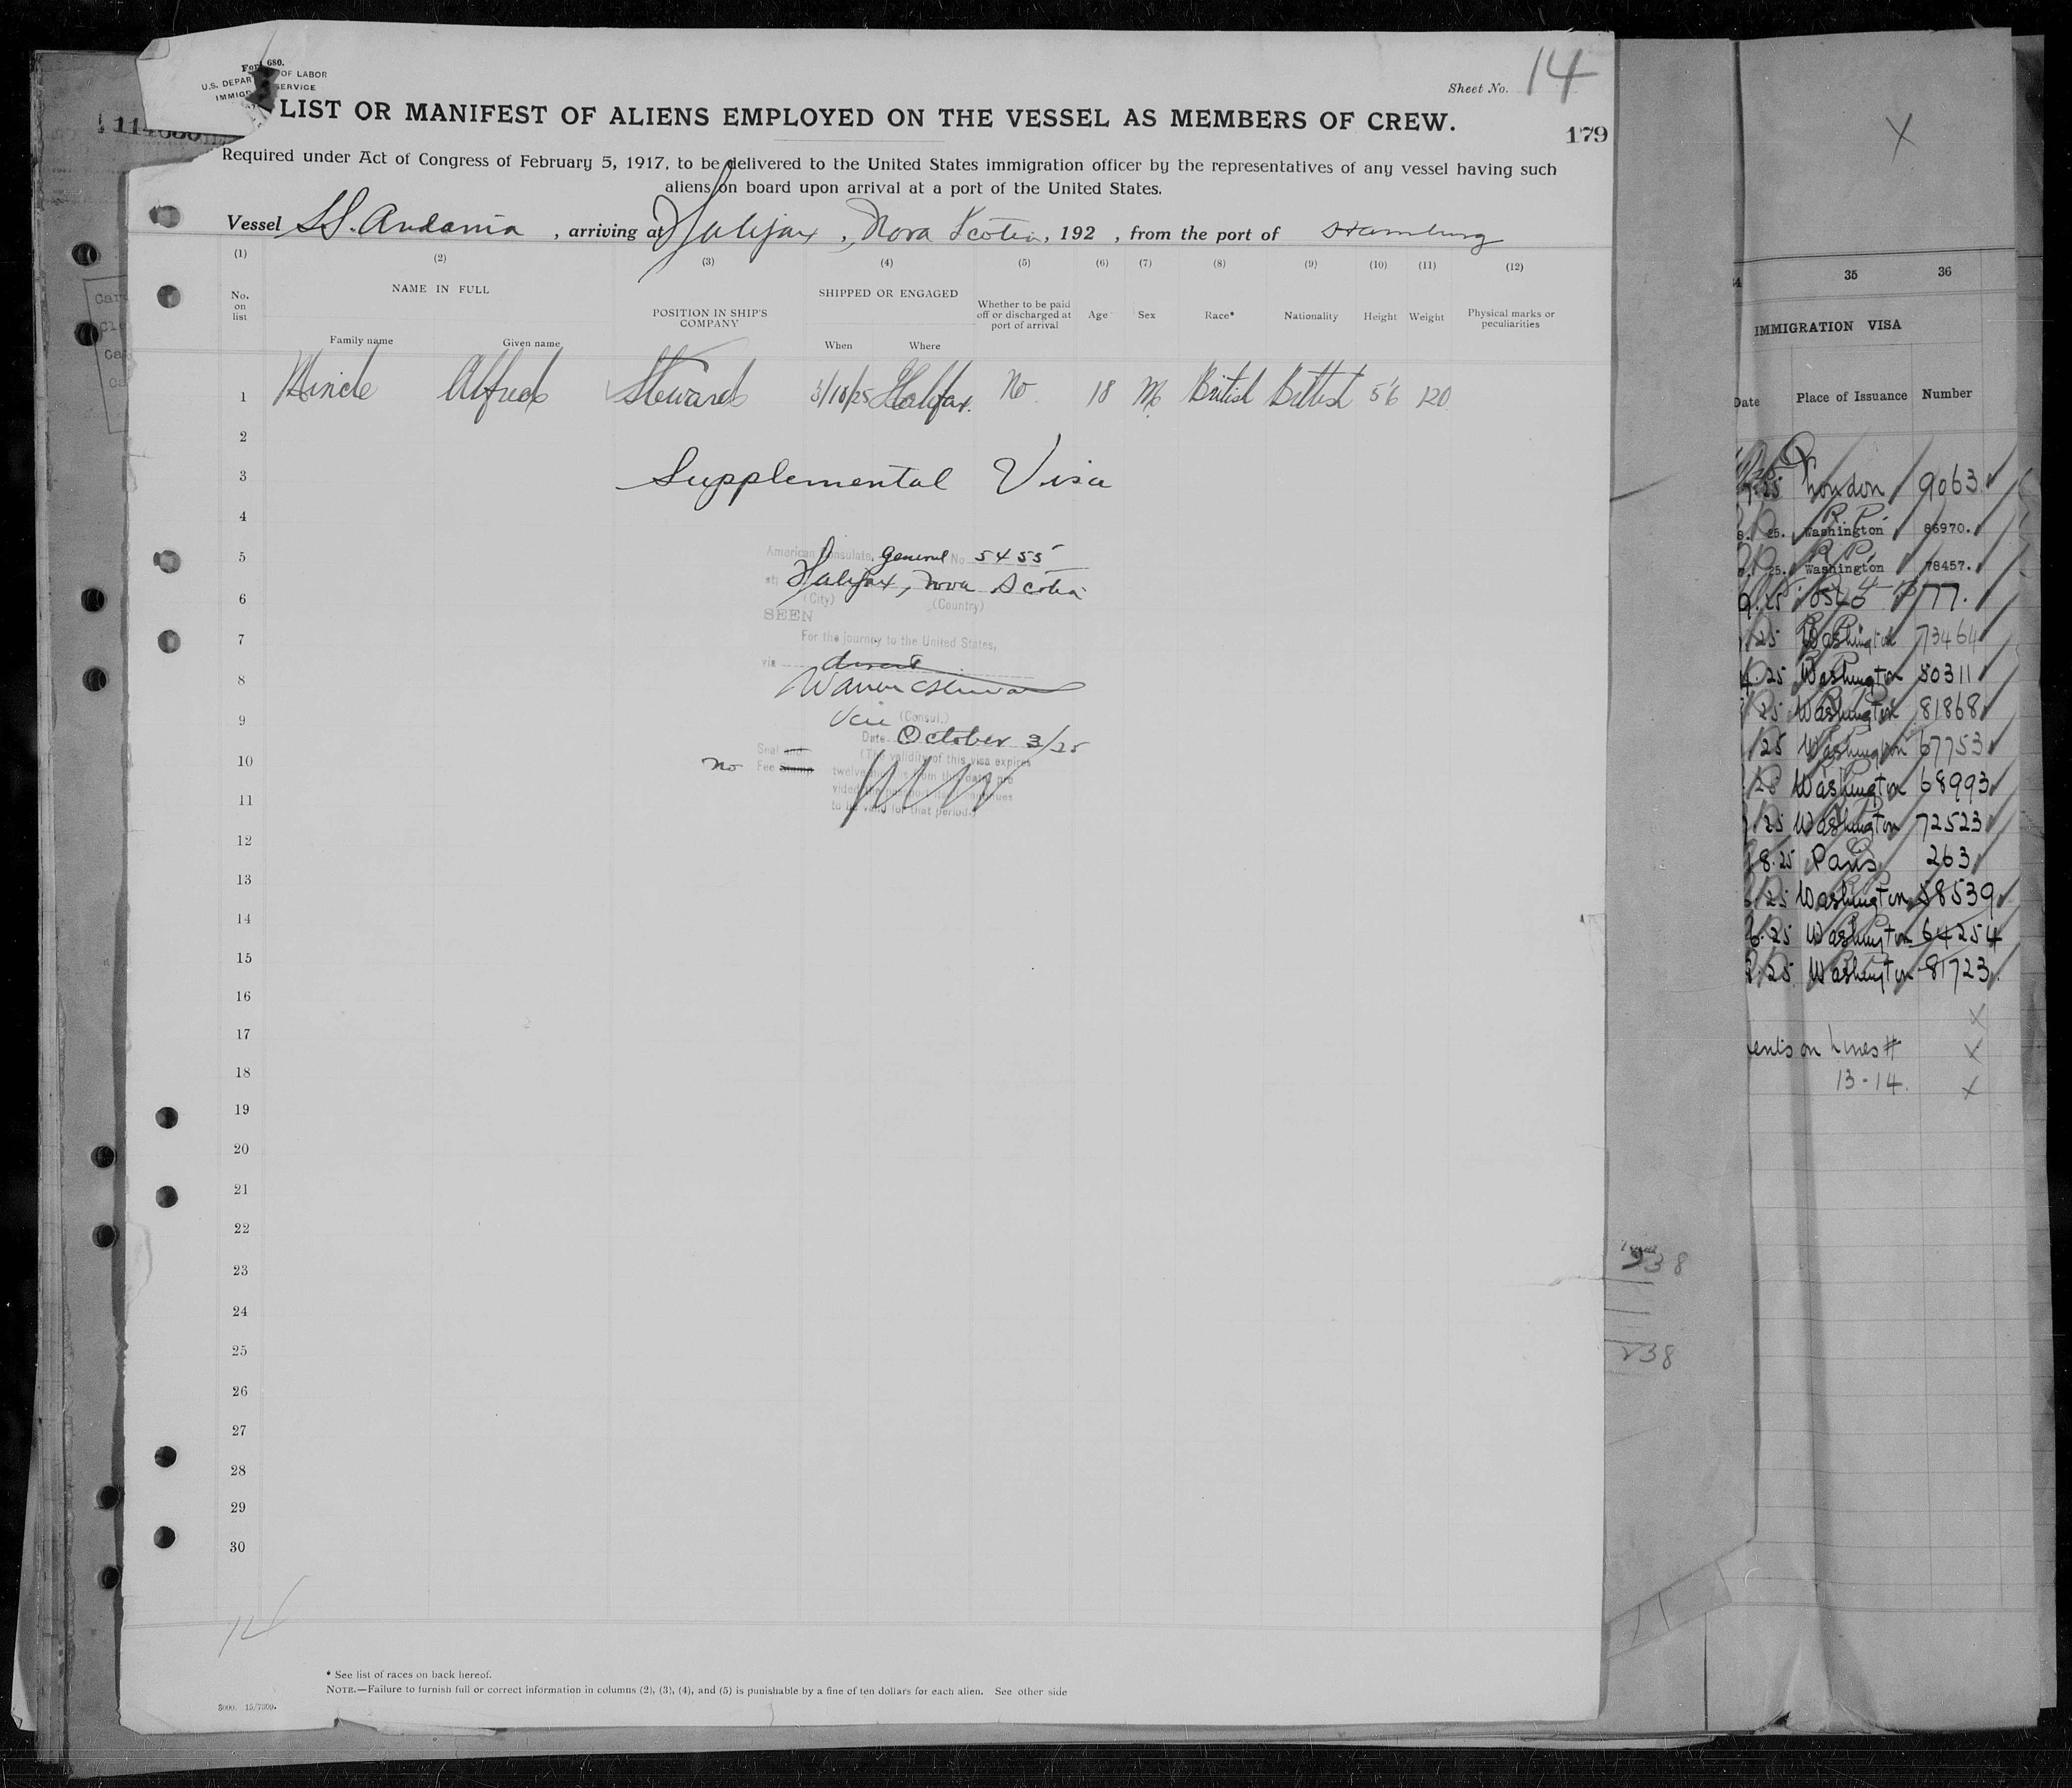 Sheet No. 14
For 680.
U.S. DEPAR OF LABOR
IMMIG SERVICE
LIST OR MANIFEST OF ALIENS EMPLOYED ON THE VESSEL AS MEMBERS OF CREW.
179
Required under Act of Congress of February 5, 1917, to be delivered to the United States immigration officer by the representatives of any vessel having such
aliens on board upon arrival at a port of the United States.
Vessel SS. Andania, arriving at Halifax, Nova Scotia, 192 , from the port of Hamburg
(1) (2) (3) (4) (5) (6) (7) (8) (9) (10) (11) (12)
No. on list NAME IN FULL POSITION IN SHIP'S COMPANY SHIPPED OR ENGAGED Whether to be paid off or discharged at port of arrival Age Sex Race* Nationality Height Weight Physical marks or peculiarities
Family name Given name When Where
1 Alfred Steward 3/10/25 Halifax. No. 18 M. British British 5'6 120
2
3 Supplemental Visa
4
5 American Consulate General No 5455
at Halifax, Nova Scotia
6 (City) (Country)
SEEN
7 For the journey to the United States,
via direct
8 Warren
9 Vice (Consul.)
Date October 3/25
10 Seal and (The validity of this visa expires
No Fee Stamp twelve months from this date, pro
11 vided the passport continues
to be valid for that period.)
12
13
14
15
16
17
18
19
20
21
22
23
24
25
26
27
28
29
30
* See list of races on back hereof.
NOTE.—Failure to furnish full or correct information in columns (2), (3), (4), and (5) is punishable by a fine of ten dollars for each alien. See other side
35 36
IMMIGRATION VISA
Date Place of Issuance Number
25 London 9063
25. Washington 86970.
25. Washington 78457.
25 77.
25 Washington 73464
25 Washington 50311
25 Washington 81868
25 Washington 67753
25 Washington 68993
25 Washington 72523
8.25 Paris 263
25 Washington 58539
25 Washington 64254
25 Washington 81723
on Lines #
13-14.
238